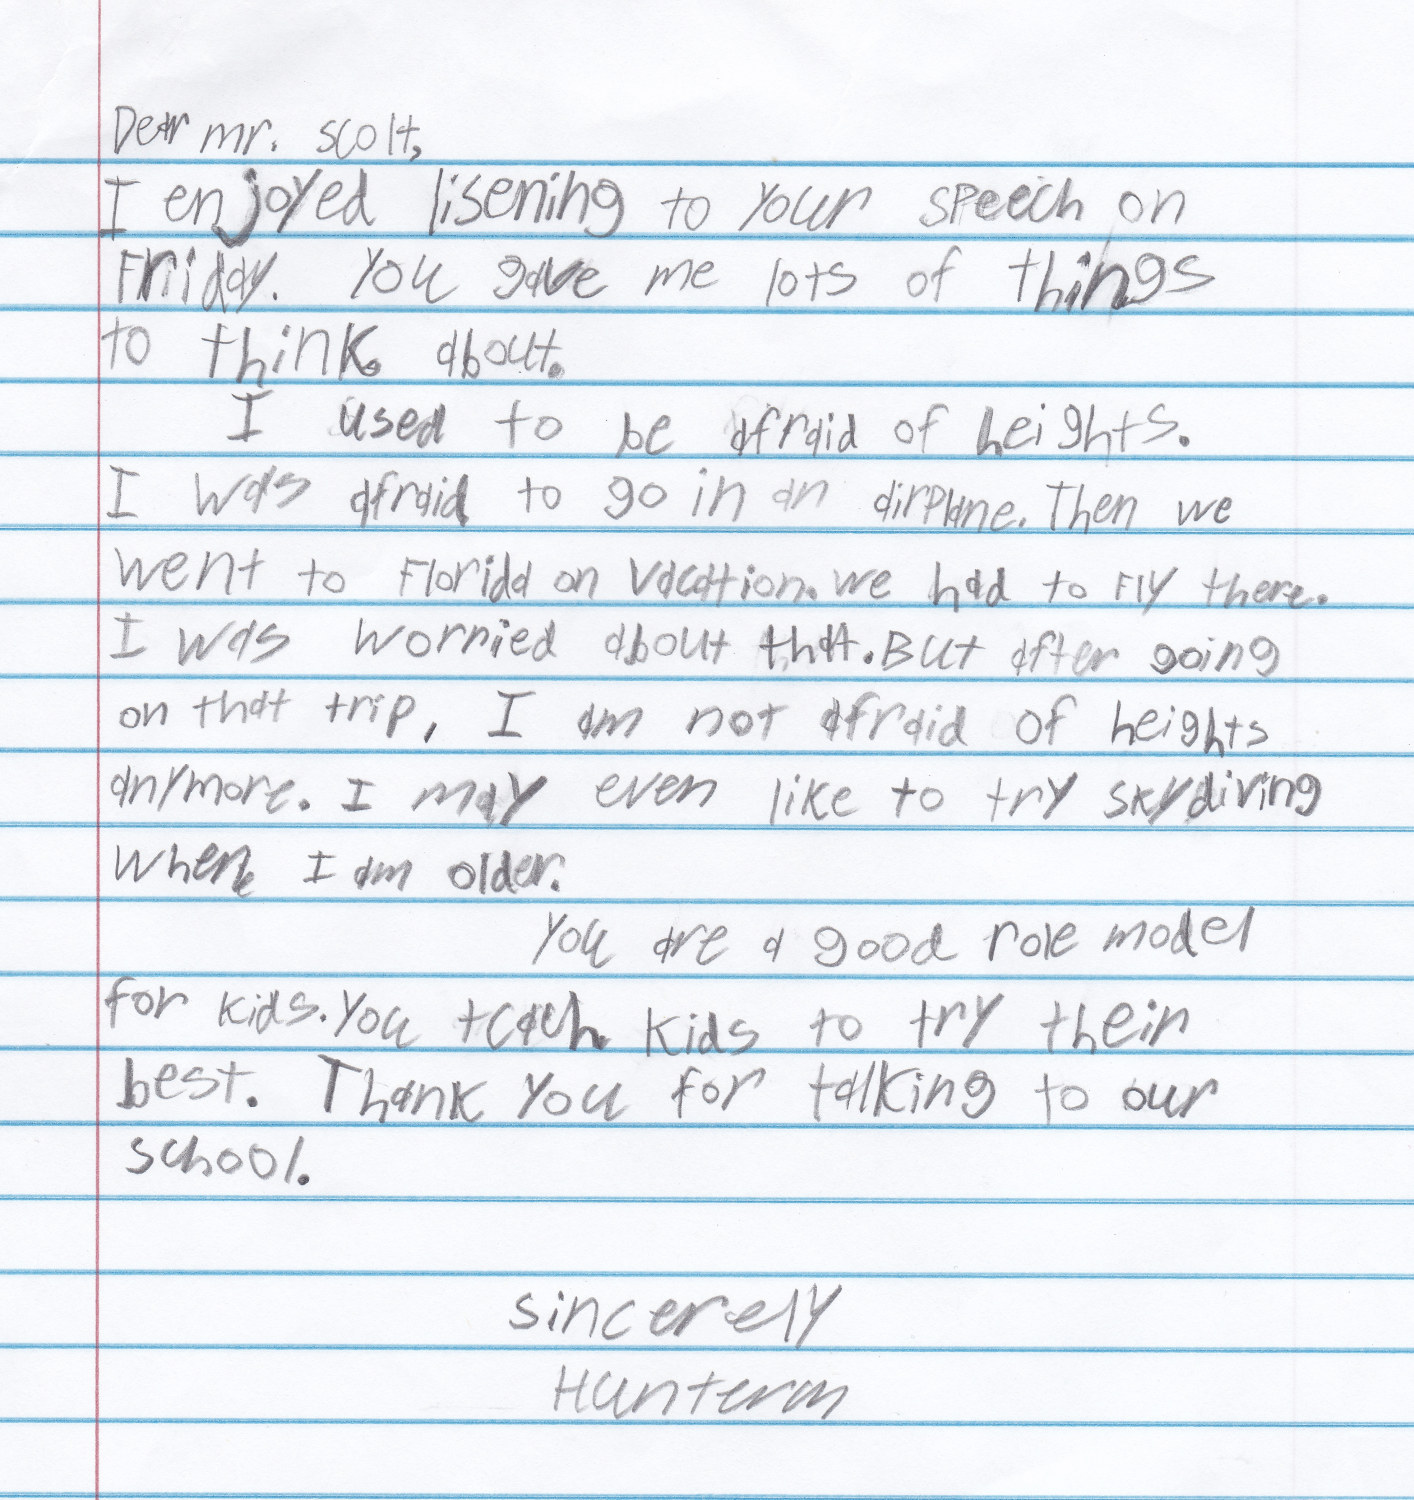 Dear mr. scott,
I enjoyed lisening to your speech on
Friday. You gave me lots of things
to think about.
I used to be afraid of heights.
I was afraid to go in an airplane. Then we
went to Florida on vacation. we had to Fly there.
I was worried about that. But after going
on that trip, I am not afraid of heights
anymore. I may even like to try skydiving
when I am older.
You are a good role model
for kids. You teach kids to try their
best. Thank you for talking to our
school.
sincerely
Hunter m